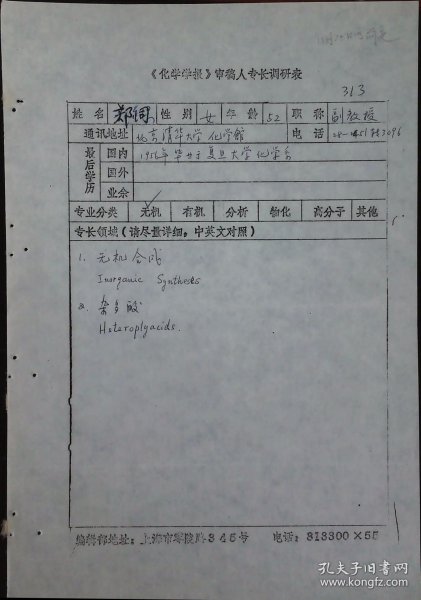 《化学学报》审稿人专长调研表
313
姓名 性别 女 年龄 52 职称 副教授
通讯地址 北京清华大学化学馆 电话
最后学历 国内 1956年毕业于复旦大学化学系
国外
业余
专业分类 无机 有机 分析 物化 高分子 其他
专长领域(请尽量详细,中英文对照)
1. 无机合成
Inorganic Synthesis
2. 杂多酸
Heteroplyacids.
编辑部地址:上海市零陵路345号 电话:313300×55
孔夫子旧书网
www.kongfz.com